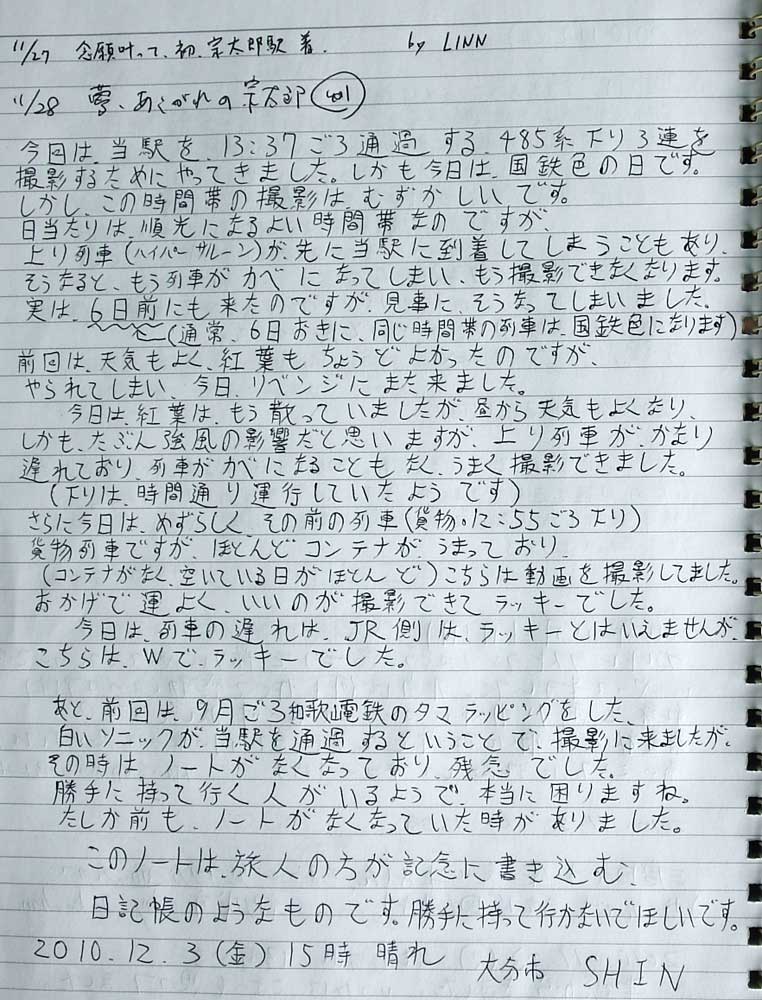 11/27 念願叶って、初、宗太郎駅 着. by LINN
11/28 夢、あこがれの宗太郎
今回は、当駅を、13:37ごろ通過する、485系下り3連を
撮影するためにやってきました。しかも今日は、国鉄色の日です。
しかし、この時間帯の撮影は、むずかしいです。
日当たりは、順光になるよい時間帯なのですが、
上り列車(ハイパーサルーン)が、先に当駅に到着してしまうこともあり、
そうなると、もう列車がカベになってしまい、もう撮影できなくなります。
実は、6日前にも来たのですが、見事に、そうなってしまいました。
(通常、6日おきに、同じ時間帯の列車は、国鉄色になります)
前回は、天気もよく、紅葉もちょうどよかったのですが、
やられてしまい、今日、リベンジにまた来ました。
今日は、紅葉は、もう散っていましたが、昼から天気もよくなり、
しかも、たぶん強風の影響だと思いますが、上り列車が、かなり
遅れており、列車がカベになることもなく、うまく撮影できました。
(下りは、時間通り運行していたようです)
さらに今日は、めずらしく、その前の列車(貨物・12:55ごろ下り)
貨物列車ですが、ほとんどコンテナがうまっており、
(コンテナがなく、空いている日がほとんど)こちらは動画を撮影してました。
おかげで運よく、いいのが撮影できてラッキーでした。
今日は、列車の遅れは、JR側は、ラッキーとはいえませんが、
こちらは、Wで、ラッキーでした。
あと、前回は、9月ごろ和歌山電鉄のタマラッピングをした、
白いソニックが、当駅を通過するということで、撮影に来ましたが、
その時は、ノートがなくなっており、残念でした。
勝手に持って行く人がいるようで、本当に困りますね。
たしか前も、ノートがなくなっていた時がありました。
このノートは、旅人の方が記念に書き込む、
日記帳のようなものです。勝手に持って行かないでほしいです。
2010.12.3(金)15時 晴れ 大分市 SHIN